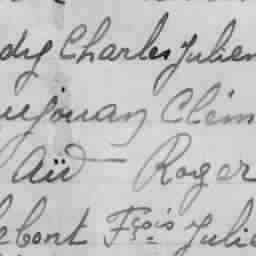 dy Charles Julien
ujouan Clém
Aüd - Roger
ebont Fçois Julie